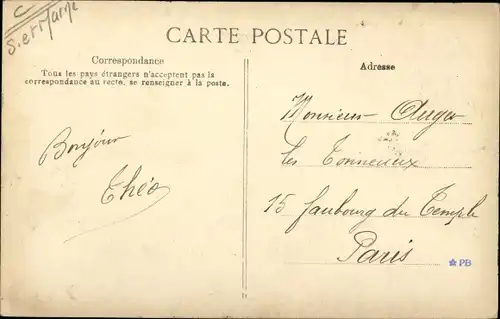 C
S. et Marne
CARTE POSTALE
Correspondance
Tous les pays étrangers n'acceptent pas la
correspondance au recto, se renseigner à la poste.
Adresse
Bonjour
Théo
Monsieur Auger
les Tonneaux
15 faubourg du Temple
Paris
PB